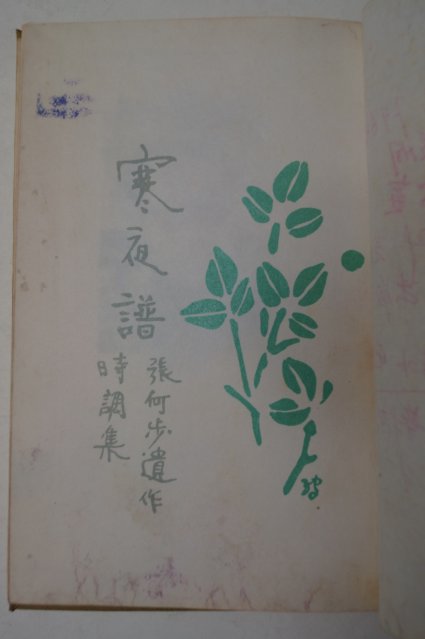 寒夜譜
張何步遺作
時調集